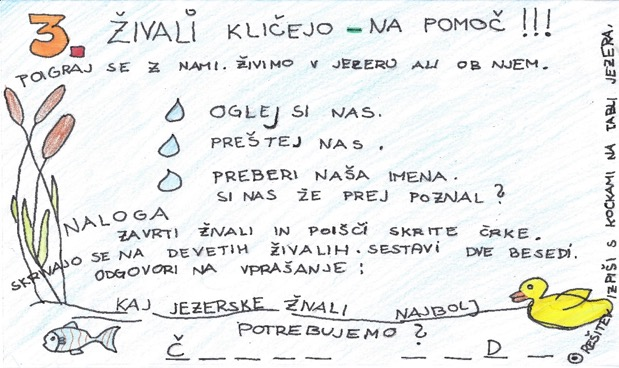 3. ŽIVALI KLIČEJO - NA POMOČ !!!
POIGRAJ SE Z NAMI. ŽIVIMO V JEZERU ALI OB NJEM.
OGLEJ SI NAS.
PREŠTEJ NAS.
PREBERI NAŠA IMENA.
SI NAS ŽE PREJ POZNAL?
NALOGA
ZAVRTI ŽVALI IN POIŠČI SKRITE ČRKE.
SKRIVAJO SE NA DEVETIH ŽIVALIH. SESTAVI DVE BESEDI.
ODGOVORI NA VPRAŠANJE:
KAJ JEZERSKE ŽVALI NAJBOLJ
POTREBUJEMO?
Č _ _ _ _ _ _ D _
REŠITEV IZPIŠI S KOCKAMI NA TABLI JEZERA.